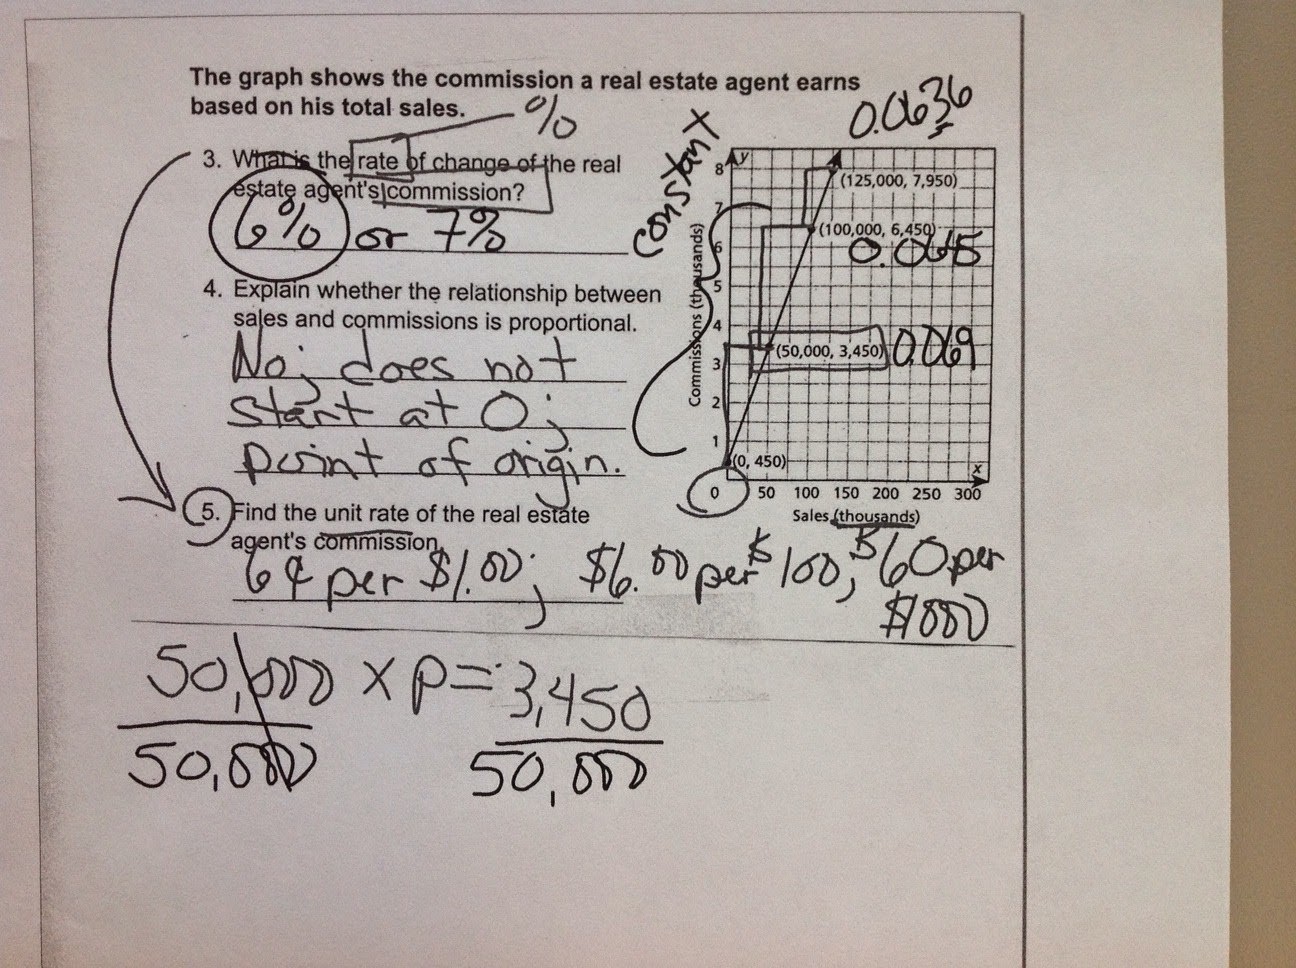 The graph shows the commission a real estate agent earns
based on his total sales.
%
3. What is the rate of change of the real
estate agent's commission?
6% or 7%
4. Explain whether the relationship between
sales and commissions is proportional.
No; does not
start at 0;
point of origin.
5. Find the unit rate of the real estate
agent's commission.
6¢ per $1.00; $6.00 per $100, $60 per
$1000
50,000 x p = 3,450
50,000 50,000
0.0636
constant
y
8
(125,000, 7,950)
7
(100,000, 6,450)
6
0.0645
5
4
(50,000, 3,450) 0.069
3
2
1
(0, 450)
x
0 50 100 150 200 250 300
Sales (thousands)
Commissions (thousands)